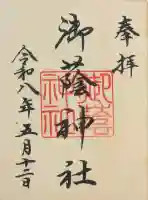 奉拝
御蔭神社
令和八年五月十二日